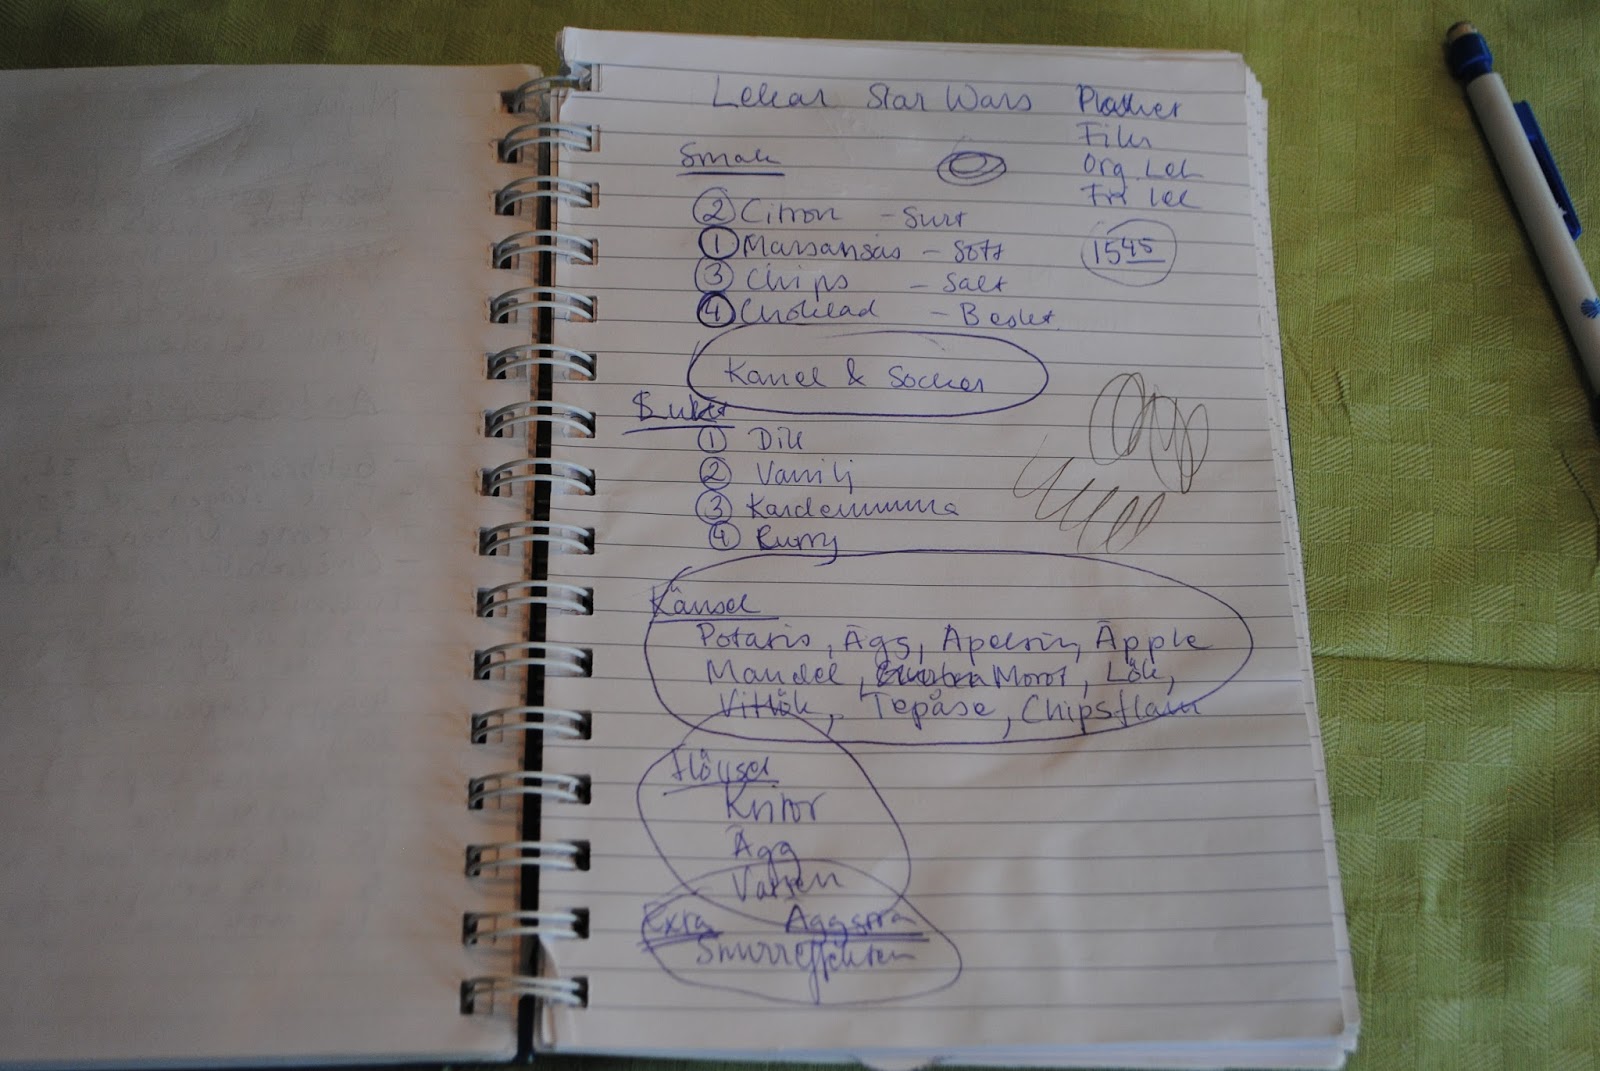 Lekar Star Wars
Plocket
Film
Org. Lek
Fri lek
1545
Smak
② Citron - Surt
① Marsansås - Sött
③ Chips - Salt
④ Choklad - Beskt
Kanel & Socker
Burkar
① Dill
② Vanilj
③ Kardemumma
④ Curry
Känsel
Potatis, Ägg, Apelsin, Äpple
Mandel, Morot, Lök,
Vitlök, Tepåse, Chipsflarn
Flöt
Kritor
Ägg
Vatten
Extra Äggsnurra
Snurreffekten